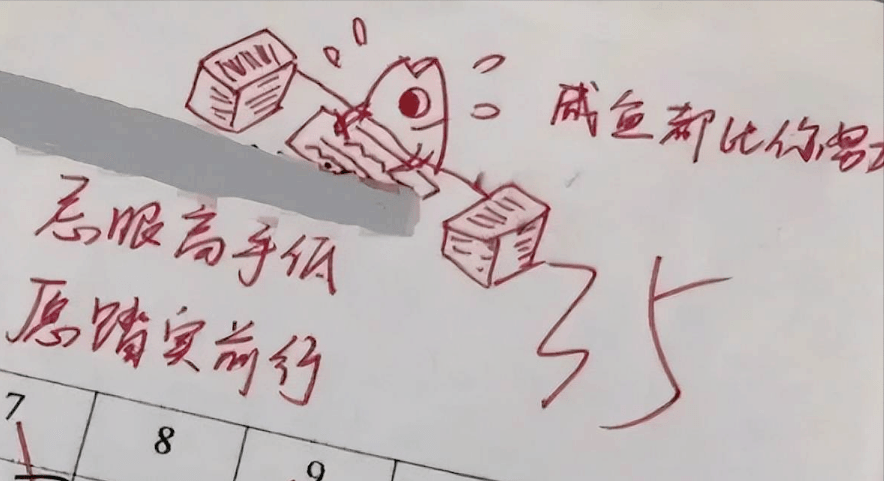 咸鱼都比你努
忌眼高手低
愿踏实前行
35
7 8 9